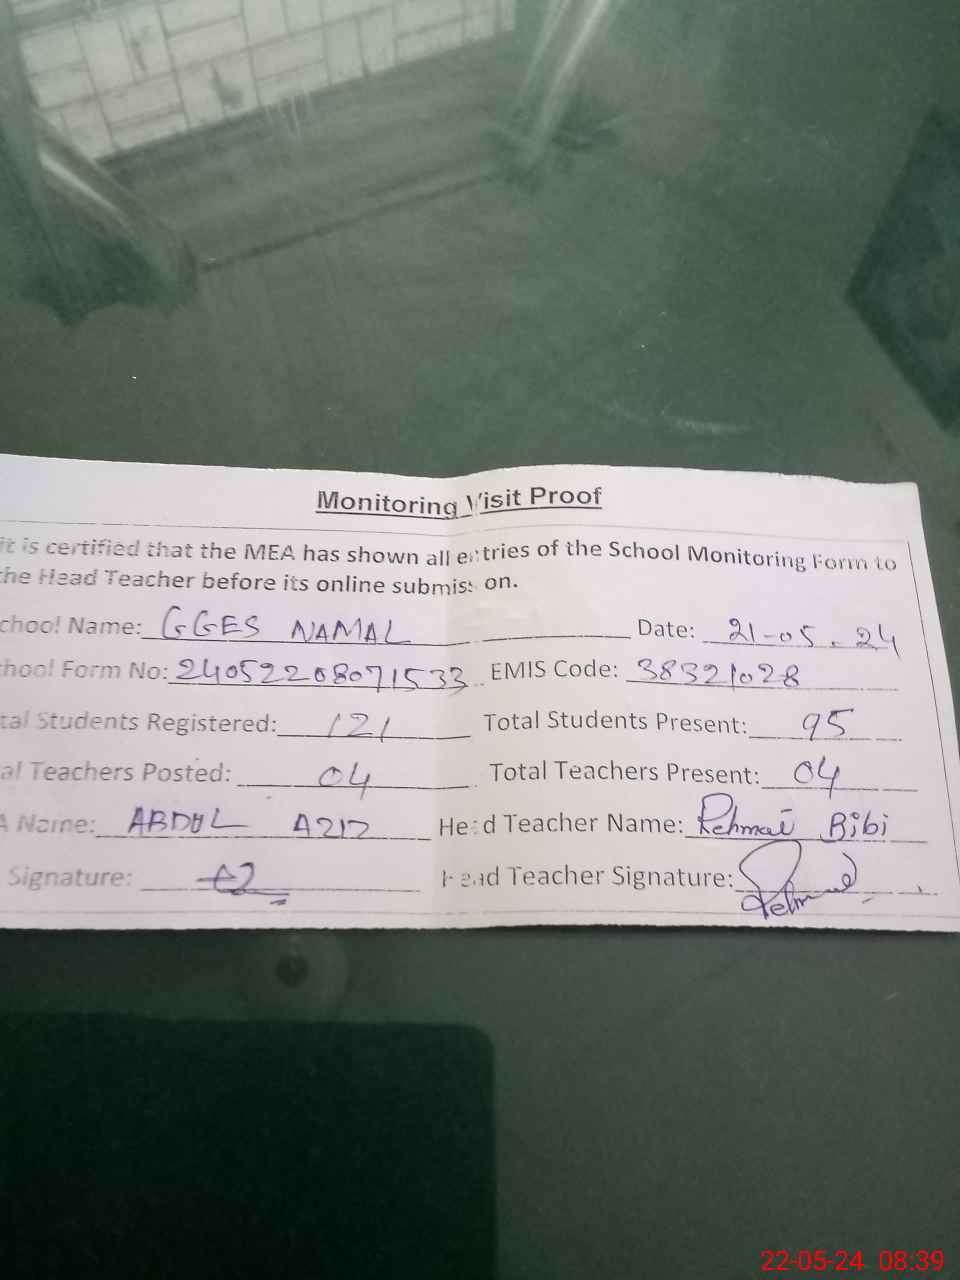 Monitoring Visit Proof
it is certified that the MEA has shown all entries of the School Monitoring Form to
the Head Teacher before its online submission.
chool Name: GGES NAMAL Date: 21-05-24
hool Form No: 24052208071533 EMIS Code: 38321028
tal Students Registered: 121 Total Students Present: 95
al Teachers Posted: 04 Total Teachers Present: 04
A Name: ABDUL AZIZ Head Teacher Name: Rehmat Bibi
Signature: Head Teacher Signature:
22-05-24 08:39